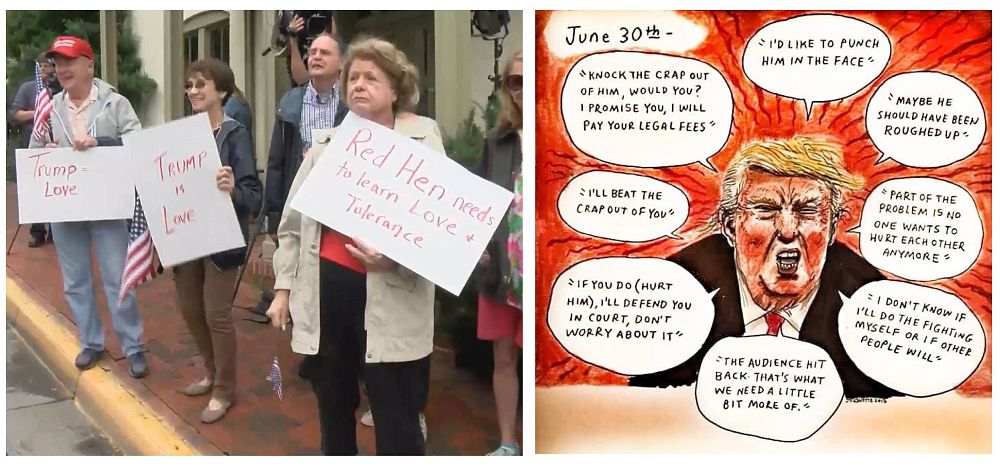 Trump =
Love
TRUMP
is
Love
Red Hen needs
to learn Love +
Tolerance
June 30th -
"KNOCK THE CRAP OUT
OF HIM, WOULD YOU?
I PROMISE YOU, I WILL
PAY YOUR LEGAL FEES"
"I'D LIKE TO PUNCH
HIM IN THE FACE"
"MAYBE HE
SHOULD HAVE BEEN
ROUGHED UP"
"I'LL BEAT THE
CRAP OUT OF YOU"
"PART OF THE
PROBLEM IS NO
ONE WANTS TO
HURT EACH OTHER
ANYMORE"
"IF YOU DO (HURT
HIM), I'LL DEFEND YOU
IN COURT, DON'T
WORRY ABOUT IT"
"I DON'T KNOW IF
I'LL DO THE FIGHTING
MYSELF OR IF OTHER
PEOPLE WILL"
"THE AUDIENCE HIT
BACK. THAT'S WHAT
WE NEED A LITTLE
BIT MORE OF."